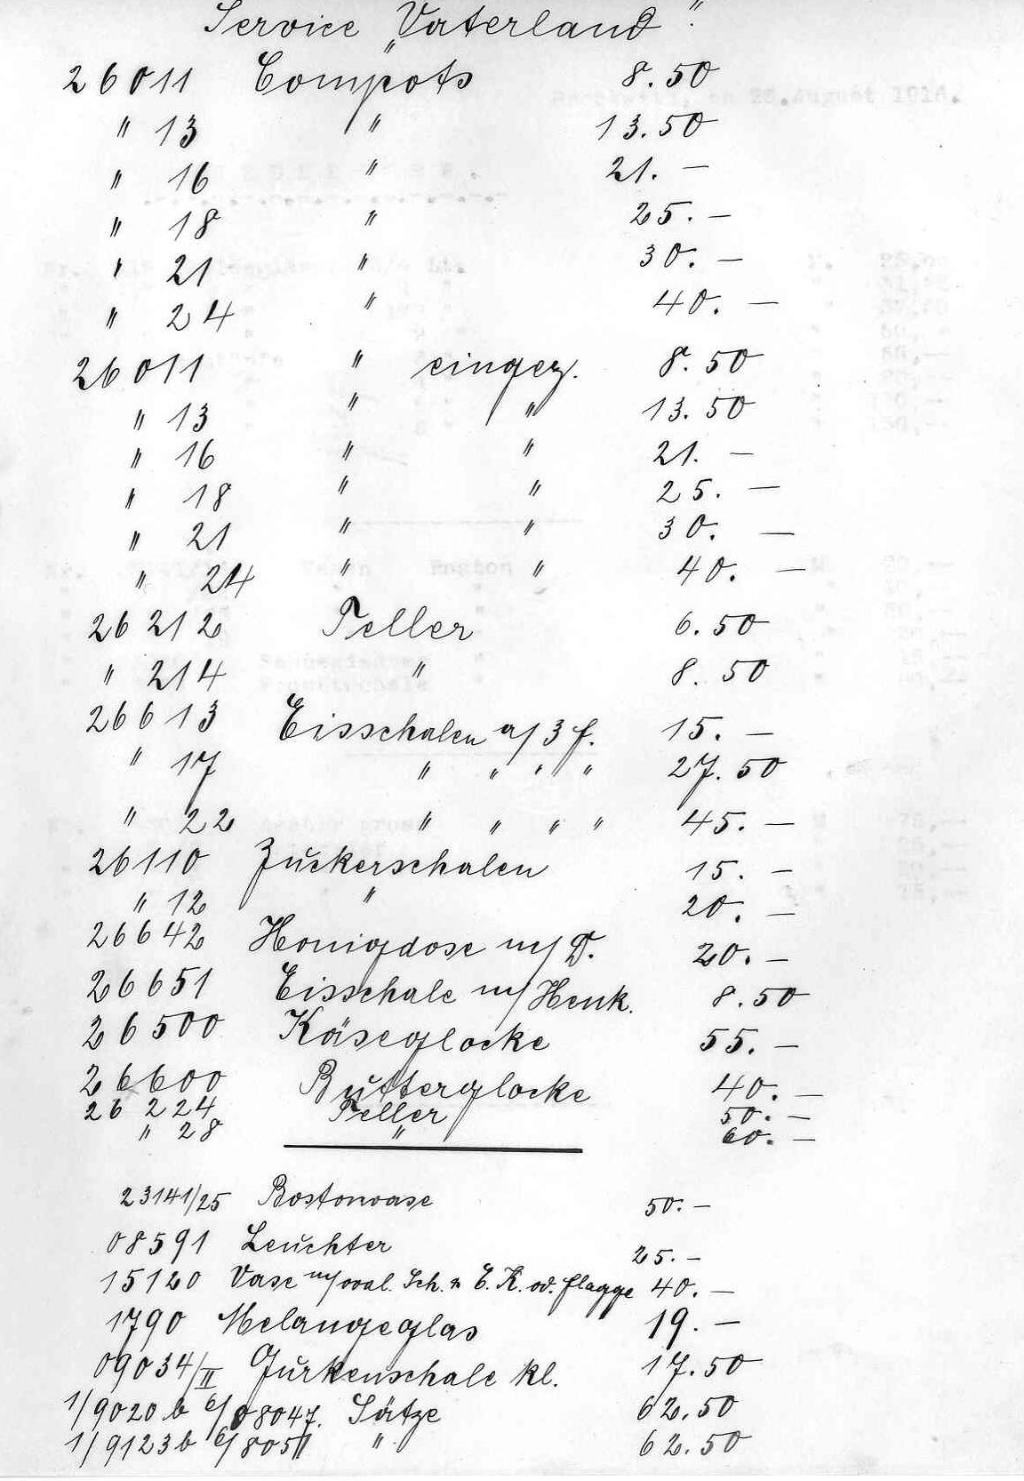 Service „Vaterland".
26011 Compots 8.50
" 13 " 13.50
" 16 " 21.—
" 18 " 25.—
" 21 " 30.—
" 24 " 40.—
26011 " eingez. 8.50
" 13 " " 13.50
" 16 " " 21.—
" 18 " " 25.—
" 21 " " 30.—
" 24 " " 40.—
26212 Teller 6.50
" 214 " 8.50
26613 Eisschalen a/3 f. 15.—
" 17 " " " " 27.50
" 22 " " " " 45.—
26110 Zuckerschalen 15.—
" 12 " 20.—
26642 Honigdose m/D. 20.—
26651 Eisschale m/Henk. 8.50
26500 Käseglocke 55.—
26600 Butterglocke 40.—
26 224 Teller 50.—
" 28 " 60.—
23141/25 Bostonvase 50.—
08591 Leuchter 25.—
15120 Vase m/oval. Sch. E.K. od. Flagge 40.—
1790 Melangeglas 19.—
09034/II Gurkenschale kl. 17.50
1/9020 b 6/08047. Sätze 62.50
1/9123b 6/8051 " 62.50